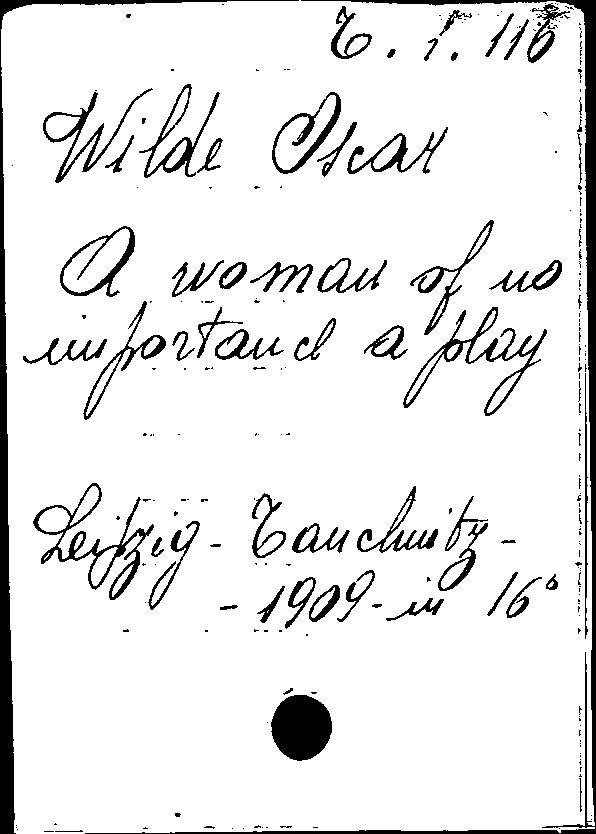 T. i. 116
Wilde Oscar
A woman of no
importance a play
Leipzig - Tauchnitz -
- 1909 - in 16°